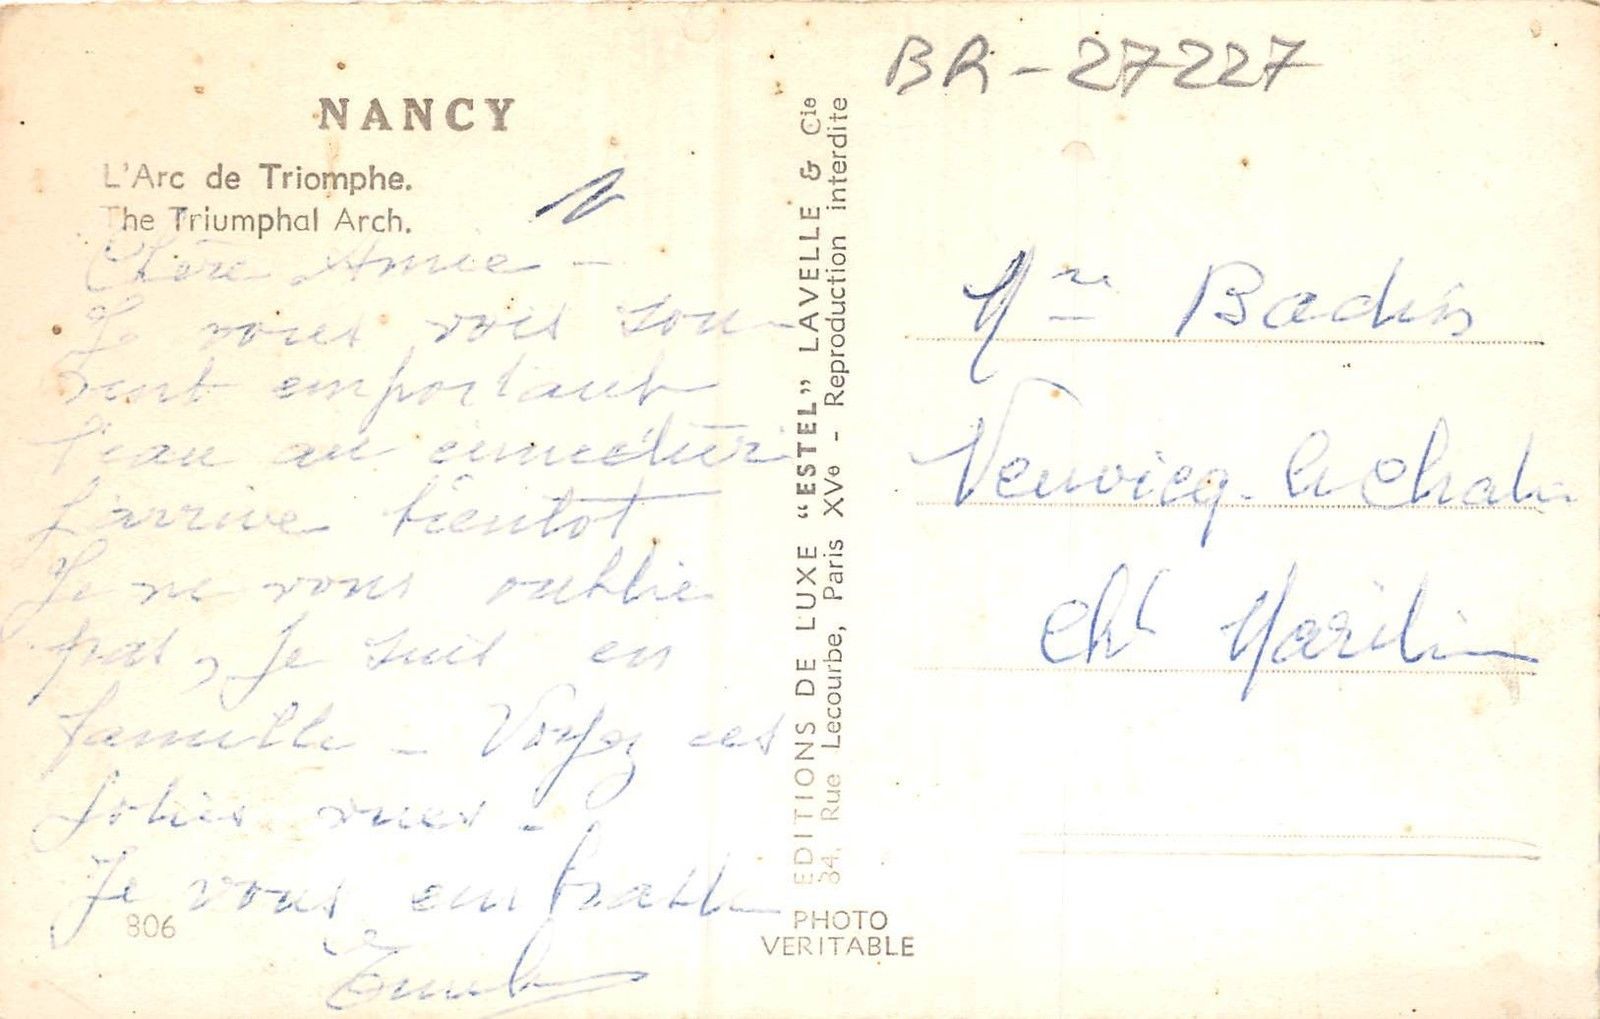 BR-27227
NANCY
L'Arc de Triomphe.
The Triumphal Arch.
Chère Amie -
Je vous vois sou-
vent emportant
l'eau au cimetière
J'arrive bientôt
Je ne vous oublie
pas, Je suis en
famille - Voyez ces
jolies vues -
Je vous embrasse
806
EDITIONS DE LUXE "ESTEL" LAVELLE & Cie
84, Rue Lecourbe, Paris XVe - Reproduction interdite
PHOTO
VERITABLE
Mme Badin
Neuvicq-le Chateau
Cht Mme